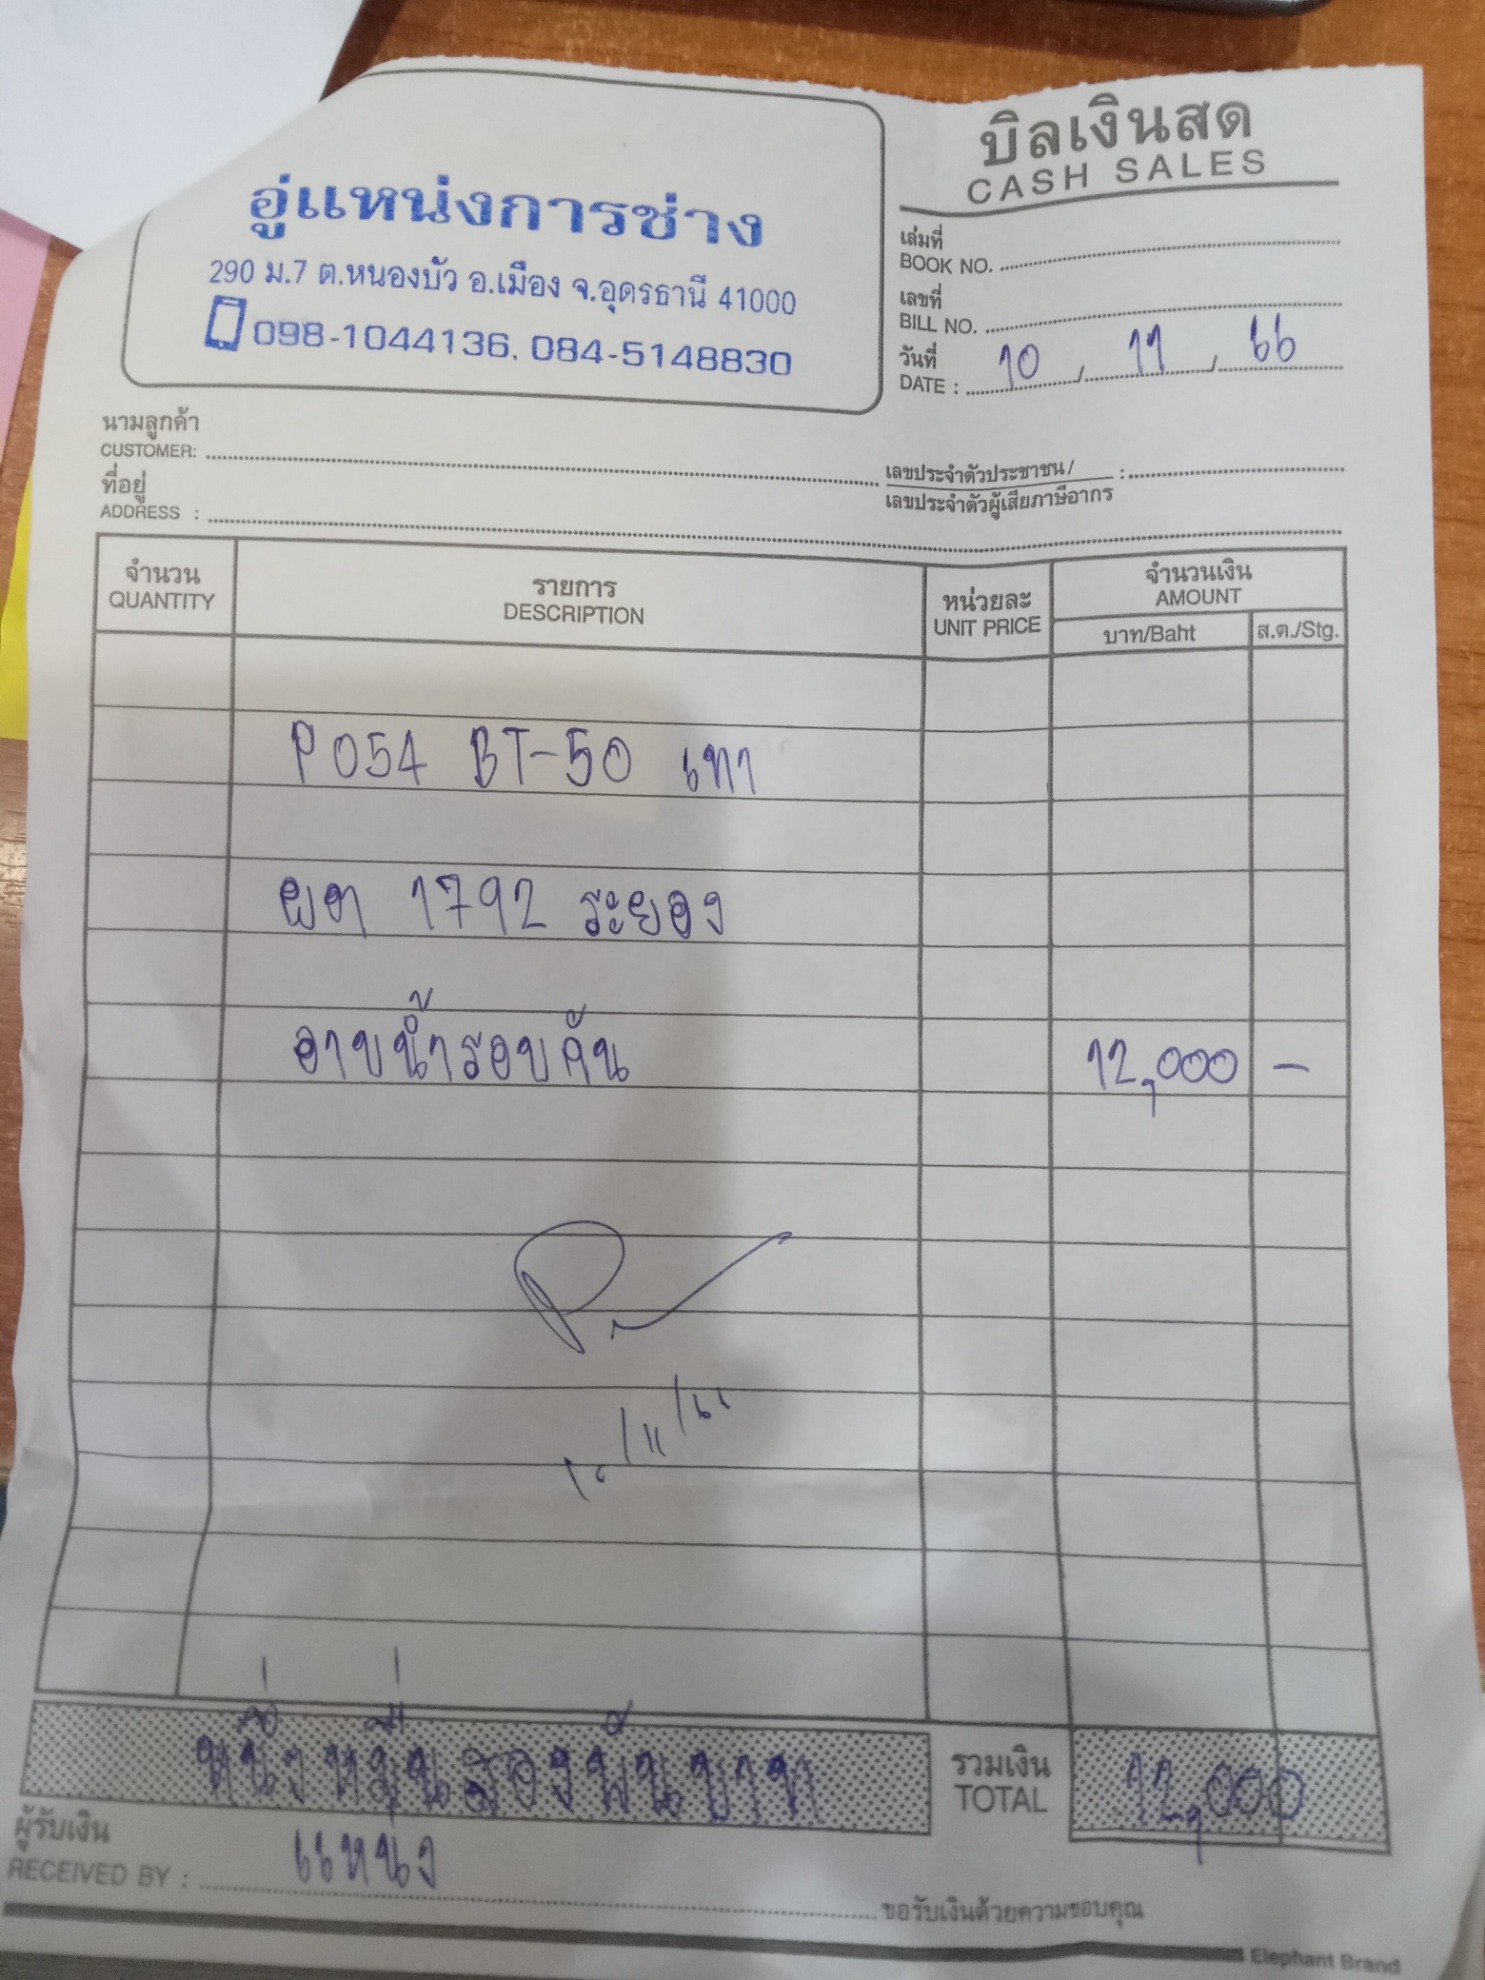 บิลเงินสด
CASH SALES
อู่แหน่งการช่าง
290 ม.7 ต.หนองบัว อ.เมือง จ.อุดรธานี 41000
098-1044136. 084-5148830
เล่มที่
BOOK NO.
เลขที่
BILL NO.
วันที่
DATE : 10 / 11 / 66
นามลูกค้า
CUSTOMER:
เลขประจำตัวประชาชน/ :
เลขประจำตัวผู้เสียภาษีอากร
ที่อยู่
ADDRESS :
จำนวน
QUANTITY
รายการ
DESCRIPTION
หน่วยละ
UNIT PRICE
จำนวนเงิน
AMOUNT
บาท/Baht
ส.ต./Stg.
P054 BT-50 เทา
ผต 1792 ระยอง
อาบน้ำรอบคัน 12,000 -
10/11/66
หนึ่งหมื่นสองพันบาท
รวมเงิน
TOTAL
12,000
ผู้รับเงิน
RECEIVED BY : แหน่ง
ขอรับเงินด้วยความขอบคุณ
Elephant Brand